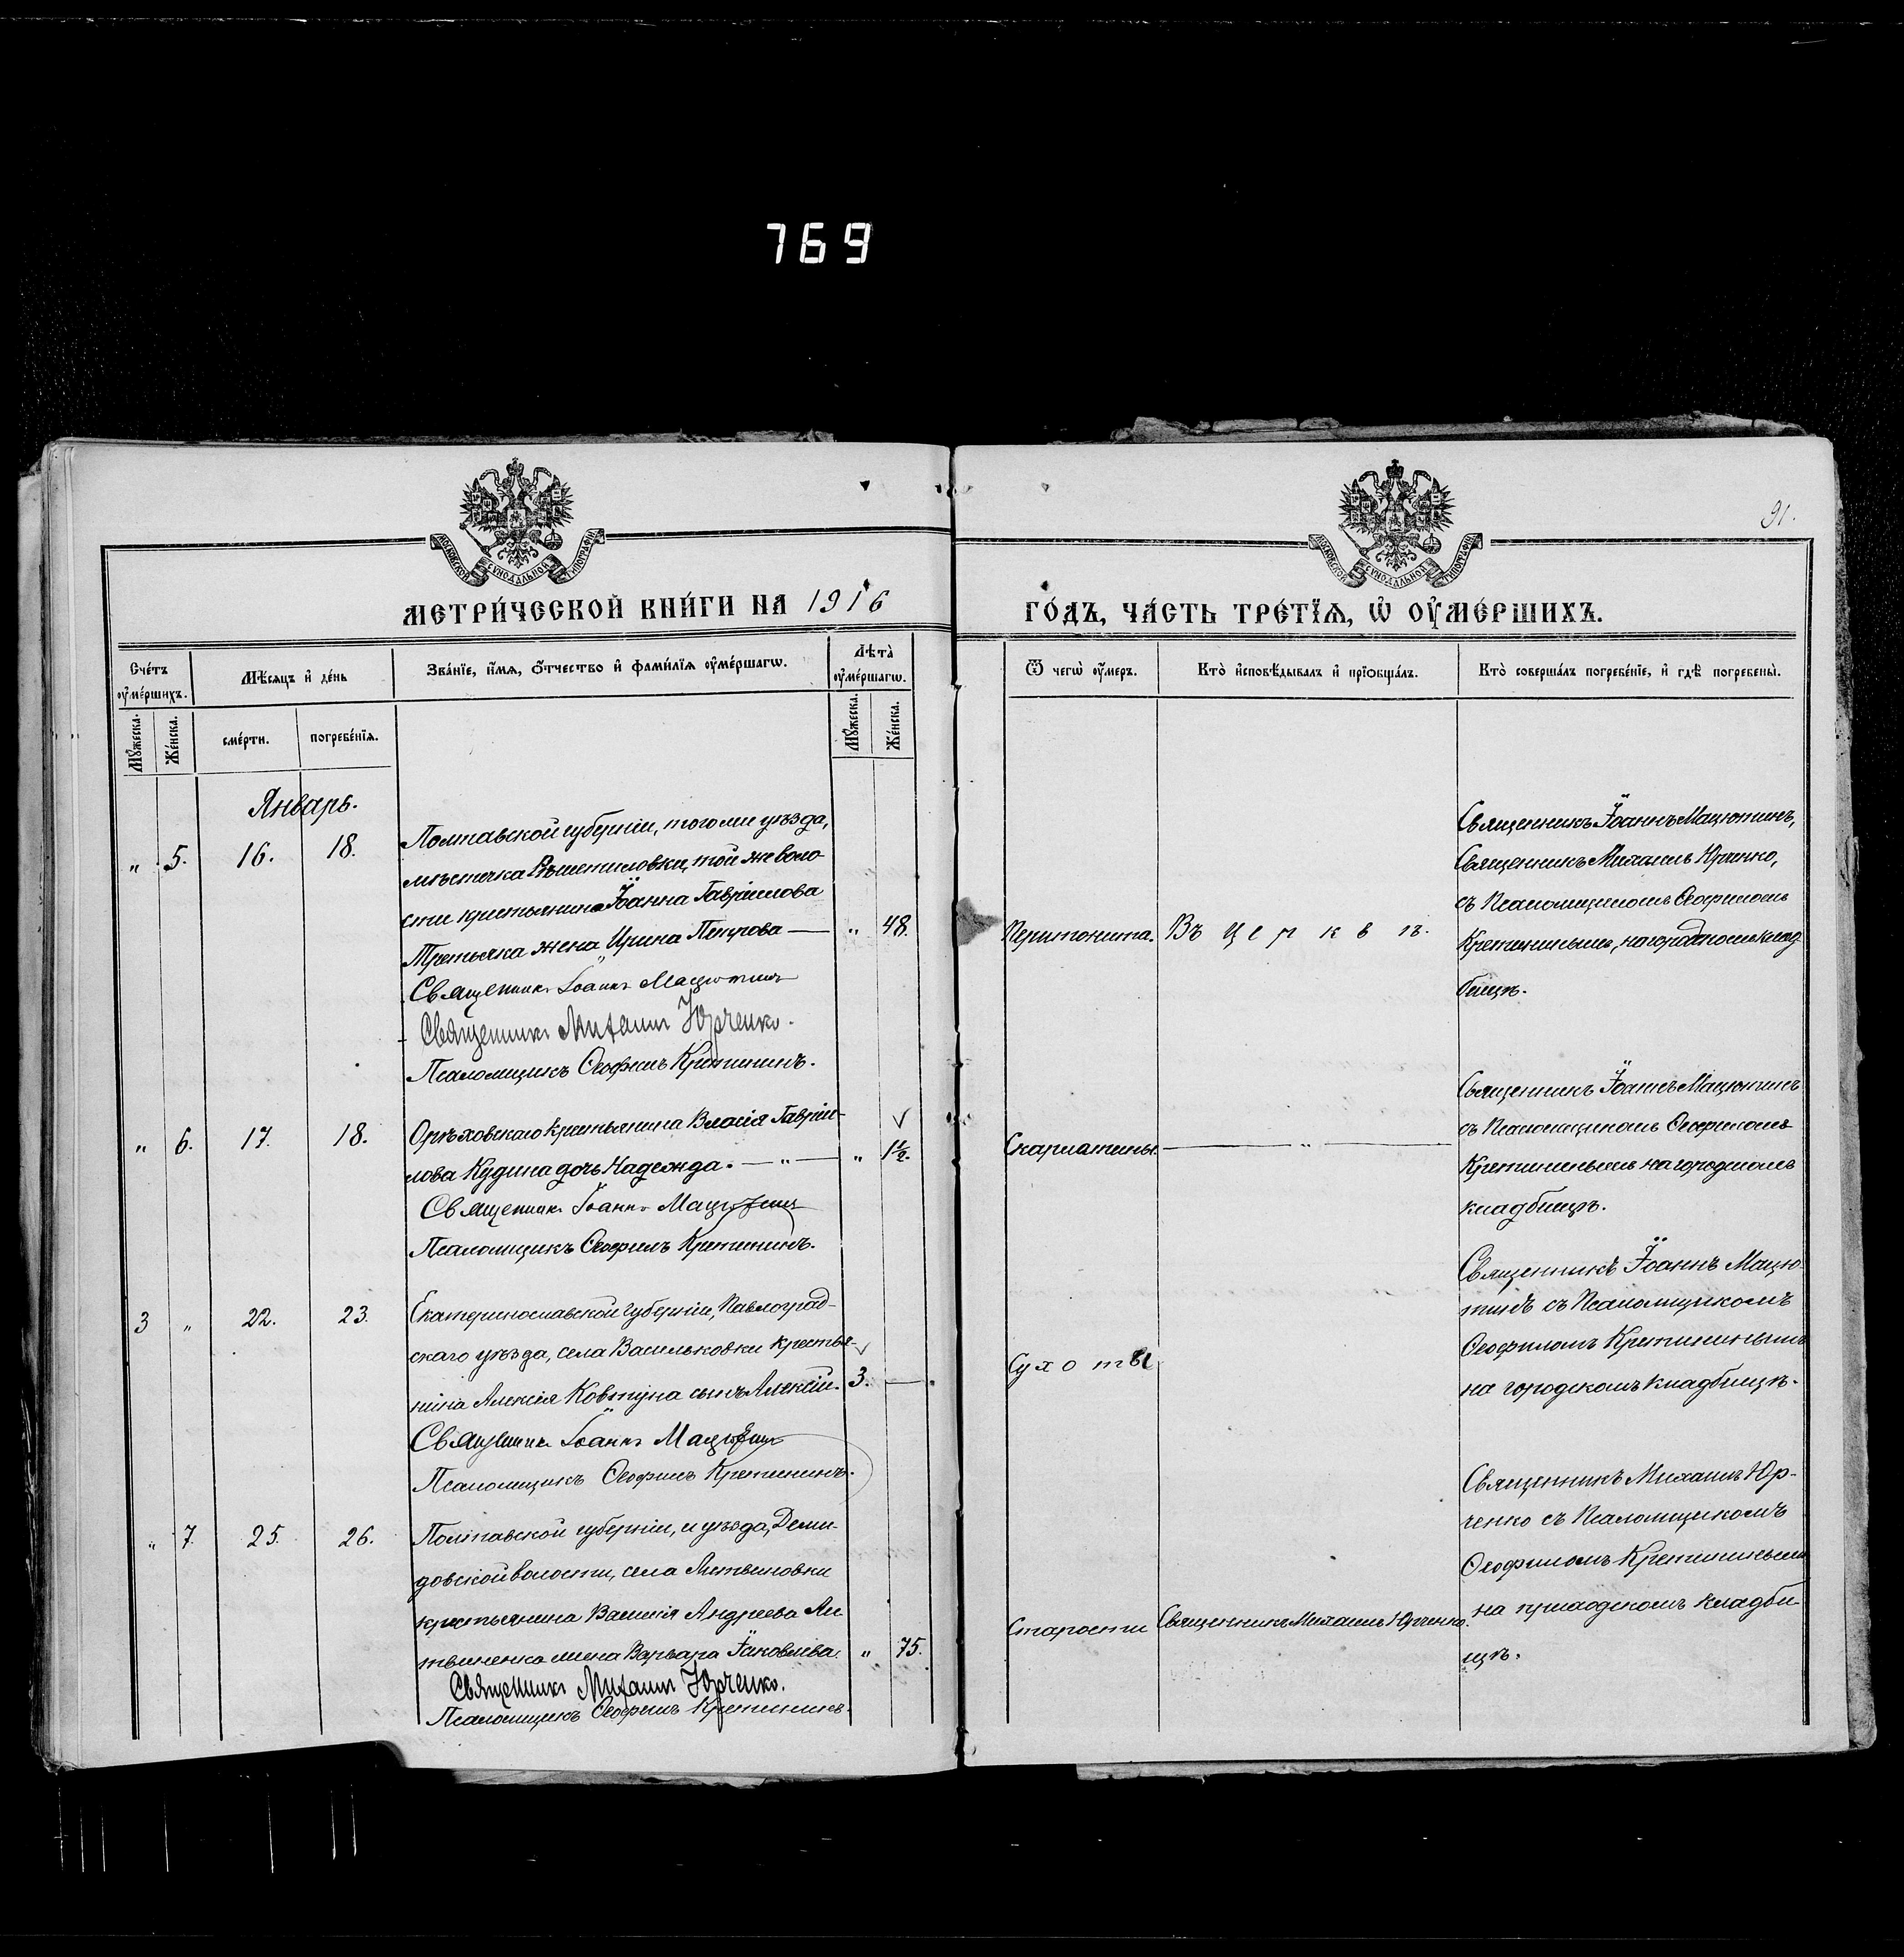 769
91.
МОСКОВСКОЙ СѴНОДАЛЬНОЙ ТИПОГРАФІИ
МОСКОВСКОЙ СѴНОДАЛЬНОЙ ТИПОГРАФІИ
МЕТРИ́ЧЕСКОЙ КНИ́ГИ НА 1916 ГО́ДЪ, ЧА́СТЬ ТРЕ́ТЇѦ, Ѡ҆ ОУ҆МЕ́РШИХЪ.
Сче́тъ оу҆ме́ршихъ.
Мꙋ́жеска.
Же́нска.
Мѣ́сяцъ и҆ де́нь
сме́рти.
погребе́нїѧ.
Зва́нїе, и҆́мѧ, ѻ҆́тчество и҆ фами́лїѧ оу҆ме́ршагѡ.
Лѣ́та оу҆ме́ршагѡ.
Мꙋ́жеска.
Же́нска.
Ѿ чегѡ̀ оу҆́меръ.
Кто̀ и҆сповѣ́дывалъ и҆ прїѻбща́лъ.
Кто̀ соверша́лъ погребе́нїе, и҆ гдѣ̀ погребены̀.
Январь.
" 5. 16. 18.
Полтавской губерніи, того же уѣзда,
мѣстечка Рѣшетиловки, той же воло-
сти крестьянина Іоанна Гавріилова
Третьяка жена Ирина Петрова — " 48.
Священникъ Іоаннъ Мацютинъ
Священникъ Михаилъ Юрченко.
Псаломщикъ Ѳеофилъ Кретининъ.
Перитонита.
Въ церквѣ.
Священникъ Іоаннъ Мацютинъ,
Священникъ Михаилъ Юрченко,
съ Псаломщикомъ Ѳеофиломъ
Кретининымъ, на городскомъ клад-
бищѣ.
" 6. 17. 18.
Орѣховскаго крестьянина Власія Гавріи-
лова Кудина дочь Надежда. — " — " 1½.
Священникъ Іоаннъ Мацютинъ
Псаломщикъ Ѳеофилъ Кретининъ.
Скарлатины. — " —
Священникъ Іоаннъ Мацютинъ
съ Псаломщикомъ Ѳеофиломъ
Кретининымъ на городскомъ
кладбищѣ.
3 " 22. 23.
Екатеринославской губерніи, Павлоград-
скаго уѣзда, села Васильковки крестья-
нина Алексія Ковтуна сынъ Алексій. 3. —
Священникъ Іоаннъ Мацютинъ
Псаломщикъ Ѳеофилъ Кретининъ.
Сухоты
Священникъ Іоаннъ Мацю-
тинъ съ Псаломщикомъ
Ѳеофиломъ Кретининымъ
на городскомъ кладбищѣ.
" 7. 25. 26.
Полтавской губерніи, и уѣзда, Деми-
довской волости, села Литвиновки
крестьянина Василія Андреева Ли-
твиненка жена Варвара Іаковлева. " 75.
Священникъ Михаилъ Юрченко.
Псаломщикъ Ѳеофилъ Кретининъ.
Старости
Священникъ Михаилъ Юрченко.
Священникъ Михаилъ Юр-
ченко съ Псаломщикомъ
Ѳеофиломъ Кретининымъ
на приходскомъ кладби-
щѣ.